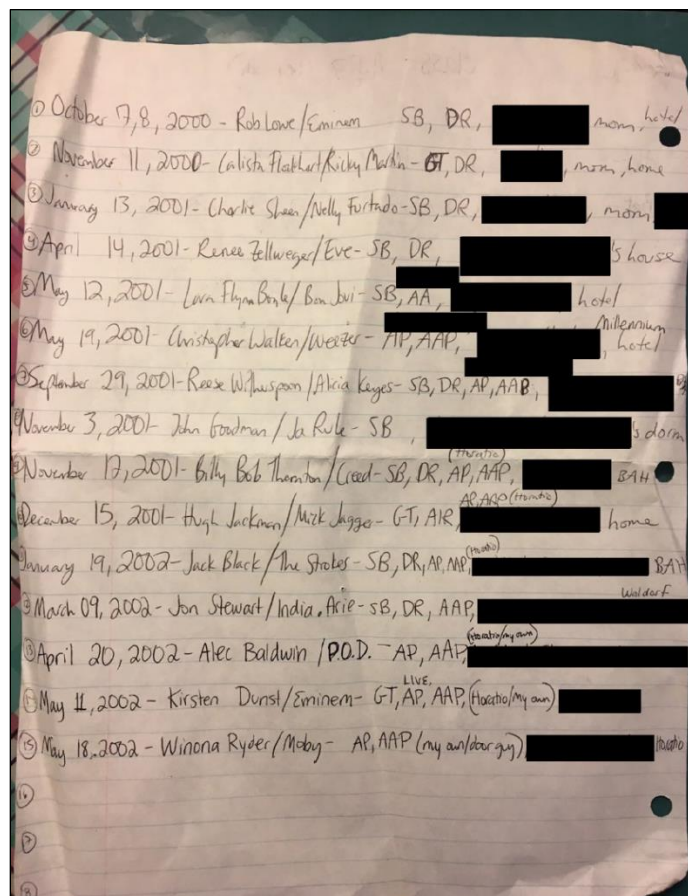 ① October 7,8, 2000 - Rob Lowe/Eminem SB, DR, mom, hotel
② November 11, 2000- Calista Flockhart/Ricky Martin - GT, DR, mom, home
③ January 13, 2001- Charlie Sheen/Nelly Furtado-SB, DR, mom,
④ April 14, 2001- Renee Zellweger/Eve- SB, DR, 's house
⑤ May 12, 2001- Lara Flynn Boyle/Bon Jovi- SB, AA, hotel
⑥ May 19, 2001- Christopher Walken/Weezer- AP, AAP, Millennium hotel
⑦ September 29, 2001-Reese Witherspoon/Alicia Keyes- SB, DR, AP, AAP,
November 3, 2001- John Goodman/Ja Rule- SB, 's dorm
November 17, 2001- Billy Bob Thornton/Creed-SB, DR, AP, AAP, (Horatio) BAH
December 15, 2001- Hugh Jackman/Mick Jagger- GT, AIR, AP, AAP (Horatio) home
January 19, 2002-Jack Black/The Strokes- SB, DR, AP, AAP, (Horatio) BAH
March 09, 2002- Jon Stewart/India.Arie-SB, DR, AAP, Waldorf
⑬ April 20, 2002- Alec Baldwin/P.O.D. -AP, AAP, (Horatio/my own)
May 11, 2002- Kirsten Dunst/Eminem- GT, LIVE, AP, AAP, (Horatio/my own)
⑮ May 18, 2002- Winona Ryder/Moby- AP, AAP (my own/door guy) Horatio
⑯
⑰
⑱